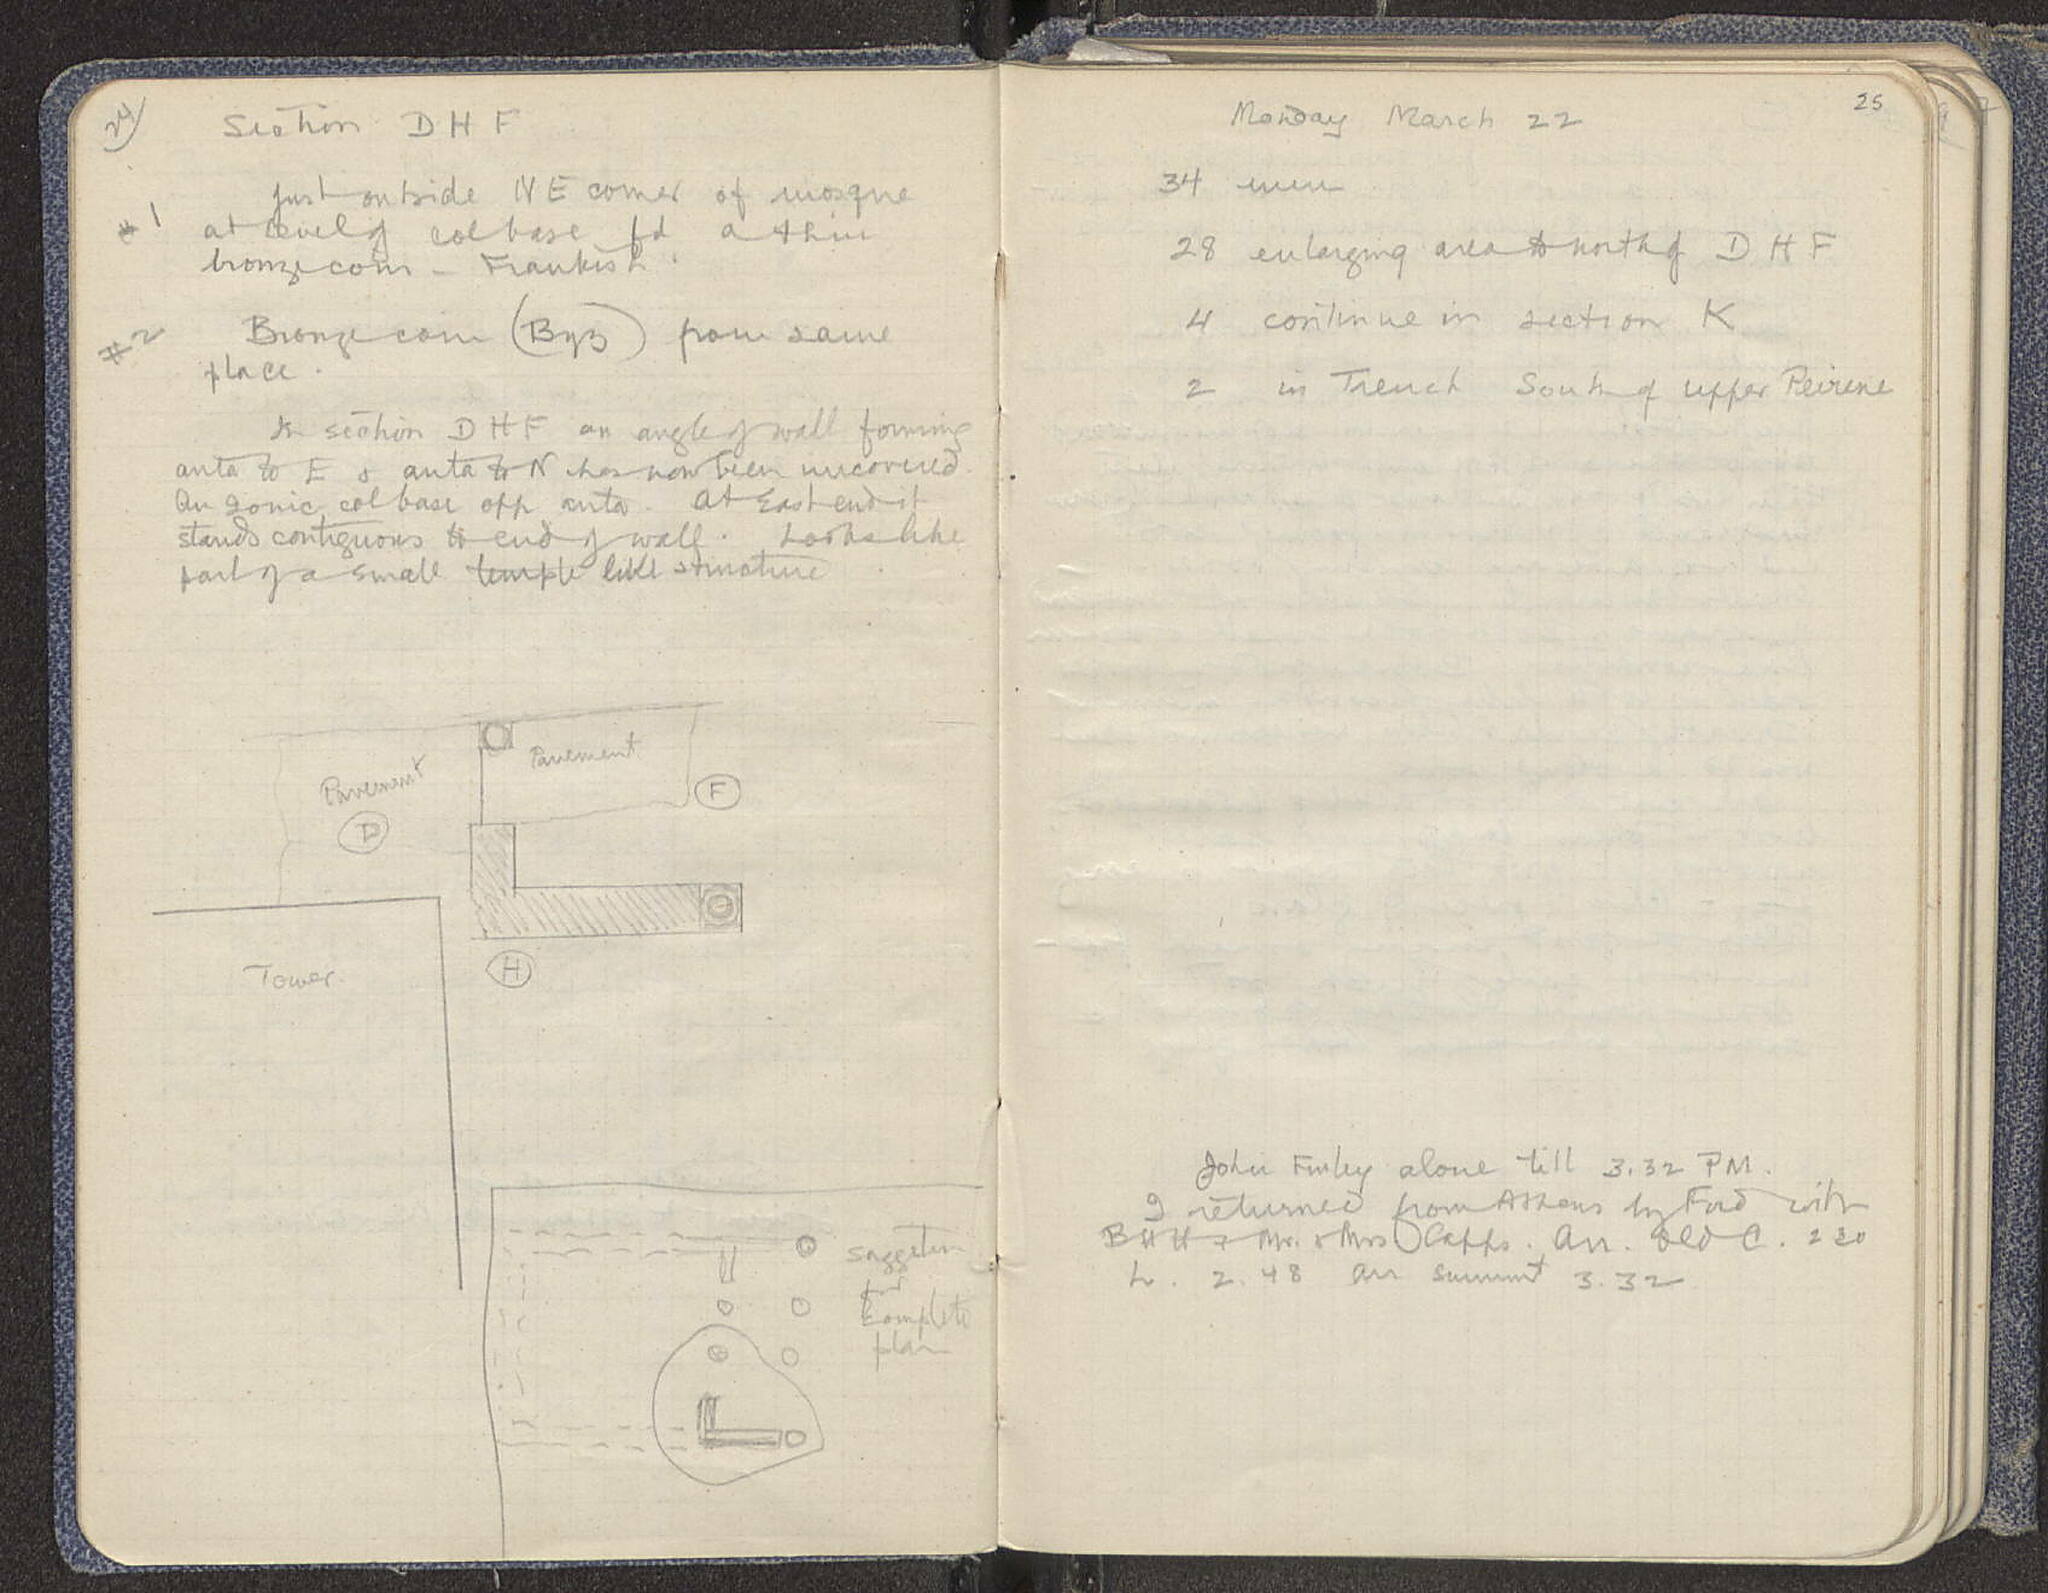 24
Section D H F
#1
Just outside NE corner of mosque
at level of col base fd a thin
bronze coin – Frankish.
#2
Bronze coin (Byz) from same
place.
In section D H F an angle of wall forming
anta to E & anta to N has now been uncovered.
An Ionic col base opp anta. At East end it
stands contiguous to end of wall. Looks like
part of a small temple like structure
Pavement
Pavement
D
F
H
Tower.
Suggestion
for
complete
plan
25
Monday March 22
34 men
28 enlarging area to north of D H F
4 continue in section K
2 in Trench South of upper Peirene
John Finley alone till 3.32 PM.
I returned from Athens by Ford with
B H H & Mr. & Mrs Capps. Arr. Old C. 2 30
L. 2.48 arr summit 3.32